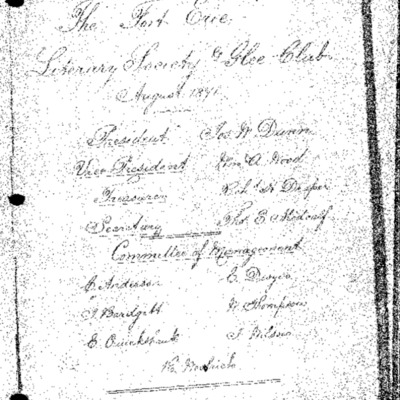 The Fort Erie
Literary Society & Glee Club
August 1871
President Jos W Dunn
Vice President Wm A Wood
Treasurer Rich H
Secretary Thos E
Committee of Management
C Anderson E
J Bardgett W Thompson
E Cruickshank J Wilson
Wm